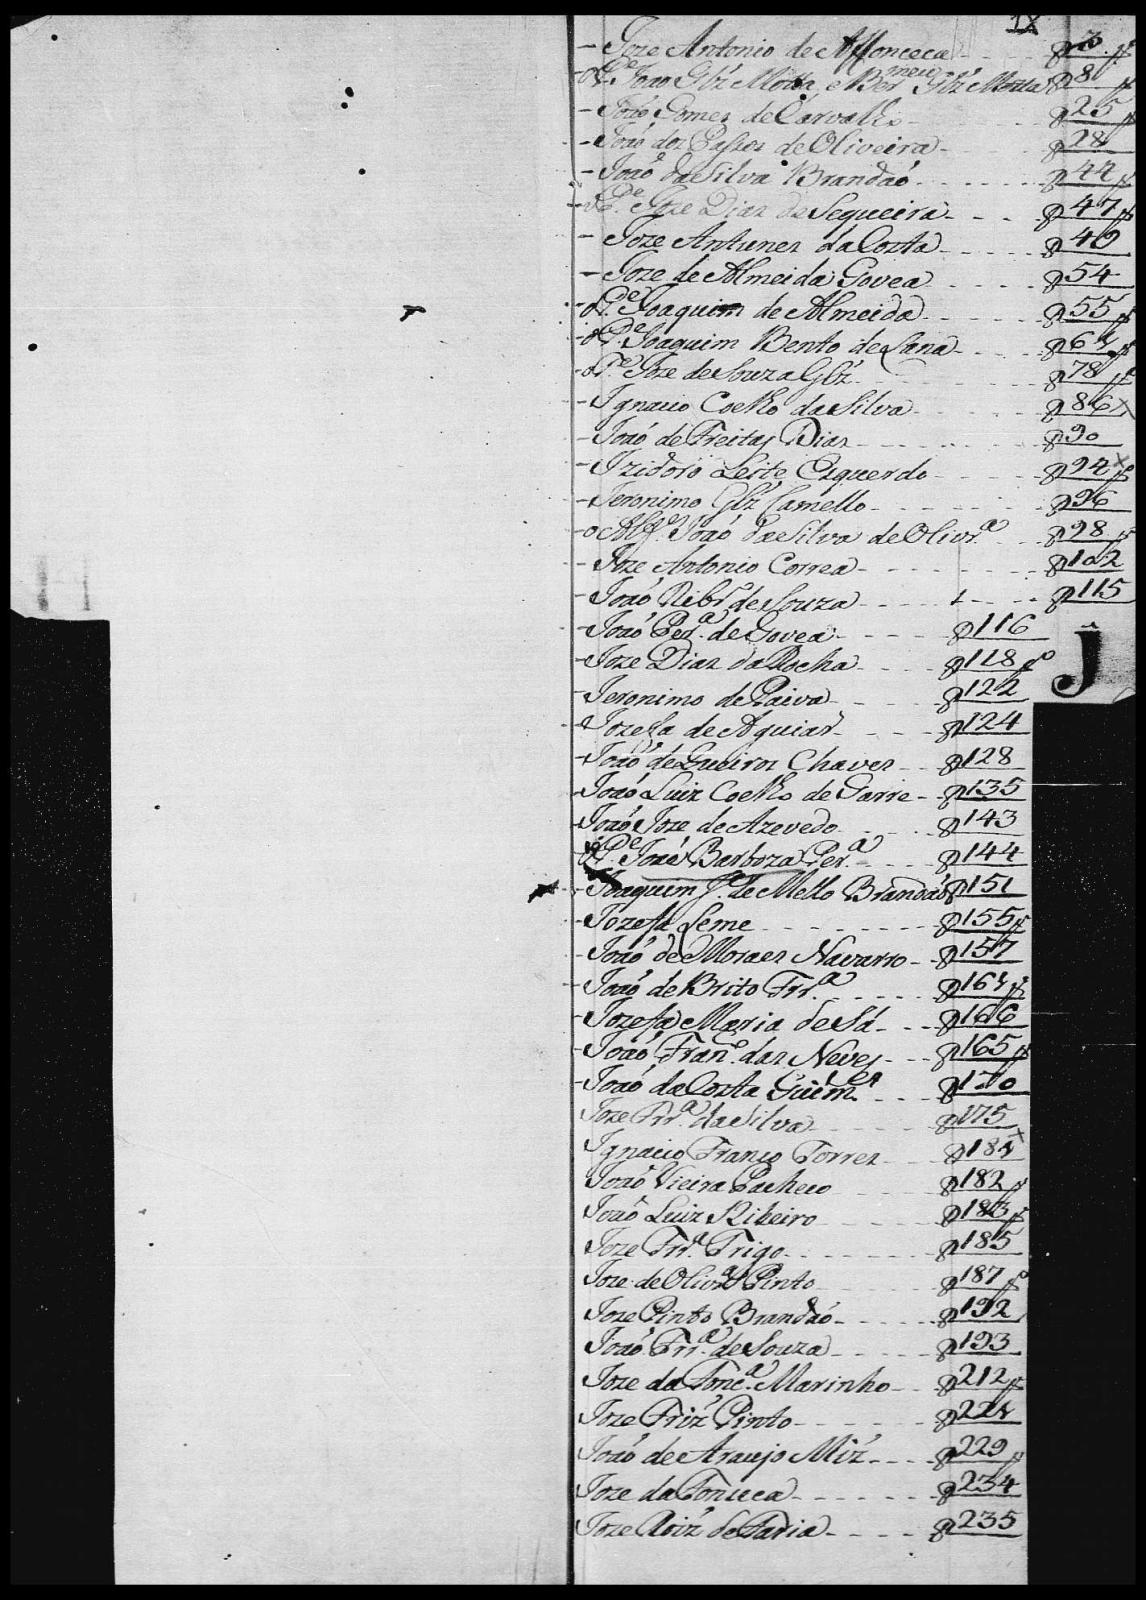 IX
Joze Antonio de Affonceca 3
O P.e Joaõ Glz' Motta, e Ber.meu Glz' Motta 8
Joaõ Gomes de Carvalho 25
Joaõ dos Passos de Oliveira 28
Joaõ da Silva Brandaõ 44
O P.e Joze Dias de Sequeira 47
Joze Antunes da Costa 49
Joze de Almeida Govea 54
O P.e Joaquim de Almeida 55
O P.e Joaquim Bento de Lana 61
O P.e Joze de Souza Glz' 78
Ignacio Coelho da Silva 86
Joaõ de Freitas Dias 90
Izidoro Leite Esquerdo 94
Jeronimo Glz' Camello 96
O Alf.s Joaõ da Silva de Olivr.a 98
Joze Antonio Correa 102
Joaõ Ribr.o de Souza 115
Joaõ Per.a de Govea 116
J
Joze Dias da Rocha 118
Jeronimo de Paiva 122
Jozefa de Aguiar 124
Joaõ de Queiros Chaves 128
Joaõ Luiz Coelho de 135
Joaõ Joze de Azevedo 143
O P.e Joze Barboza Per.a 144
Joaquim J.e de Mello Brandaõ 151
Jozefa Leme 155
Joaõ de Moraes Navarro 157
Joaõ de Brito Frr.a 161
Jozefa Maria de Sá 166
Joaõ Fran.co das Neves 165
Joaõ da Costa Guim.es 170
Joze Frr.a da Silva 175
Ignacio Franco Torres 181
Joaõ Vieira Pacheco 182
Joaõ Luiz Ribeiro 183
Joze Frr.a Trigo 185
Joze de Olivr.a Pinto 187
Joze Pinto Brandaõ 192
Joaõ Frr.a de Souza 193
Joze da Fonc.a Marinho 212
Joze Friz' Pinto 221
Joaõ de Araujo Miz' 229
Joze da Fonceca 234
Joze Roiz' de Faria 235